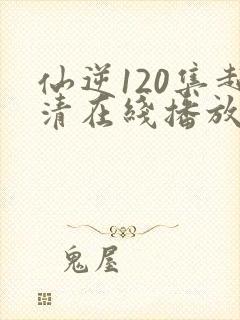 仙逆120集超
清在綫播放
鬼屋